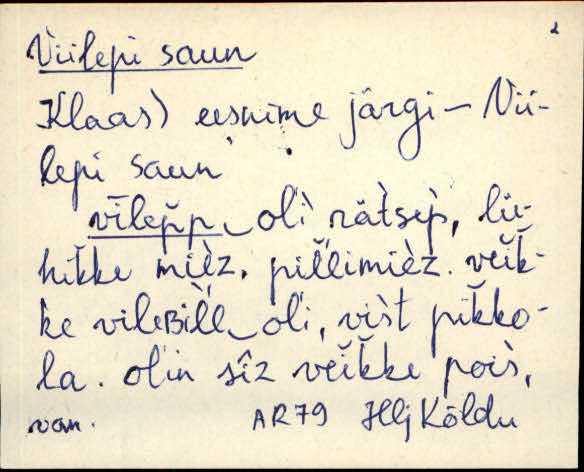 2
Viilepi saun
Klaas) eesnime järgi – Vii-
lepi saun
vīlep̆p‿oli rätsep̀, liu-
hikke mièz. pil̆limièz. veik̆-
ke vileʙil̆l‿oli, vist pik̆ko-
la. olin sîz veik̆ke pois̀,
van. AR79 Hlj Kõldu